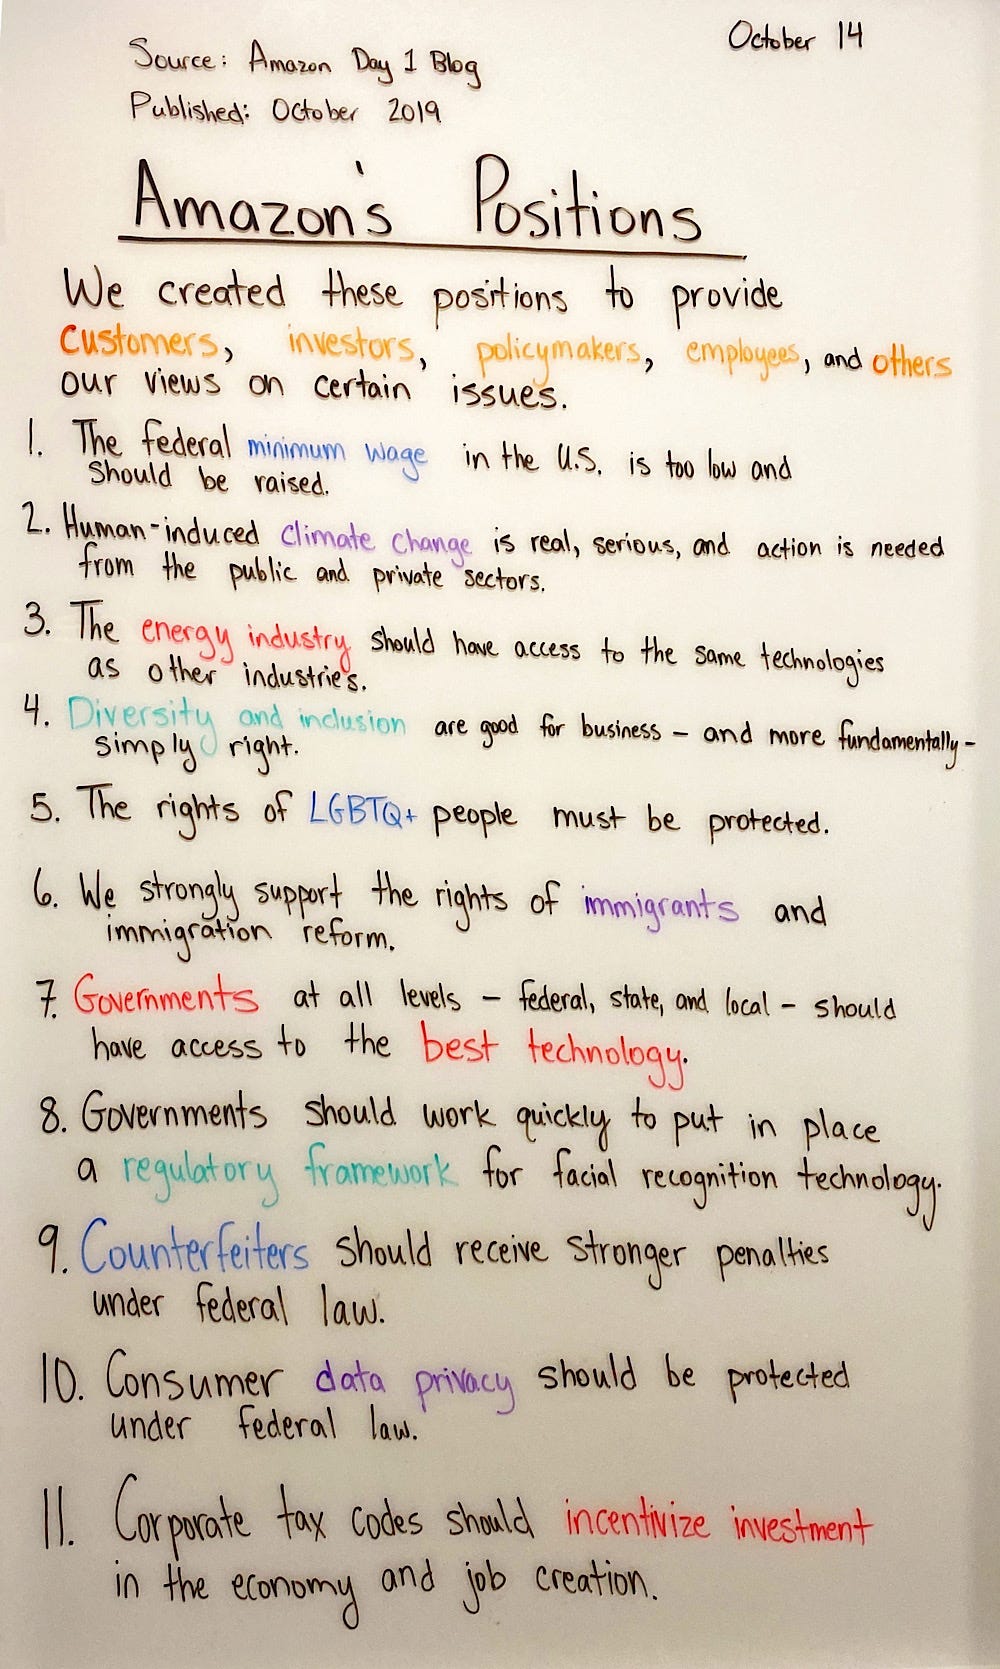 October 14
Source: Amazon Day 1 Blog
Published: October 2019
Amazon's Positions
We created these positions to provide
customers, investors, policymakers, employees, and others
our views on certain issues.
1. The federal minimum wage in the U.S. is too low and
should be raised.
2. Human-induced climate change is real, serious, and action is needed
from the public and private sectors.
3. The energy industry should have access to the same technologies
as other industries.
4. Diversity and inclusion are good for business – and more fundamentally –
simply right.
5. The rights of LGBTQ+ people must be protected.
6. We strongly support the rights of immigrants and
immigration reform.
7. Governments at all levels – federal, state, and local – should
have access to the best technology.
8. Governments should work quickly to put in place
a regulatory framework for facial recognition technology.
9. Counterfeiters should receive stronger penalties
under federal law.
10. Consumer data privacy should be protected
under federal law.
11. Corporate tax codes should incentivize investment
in the economy and job creation.